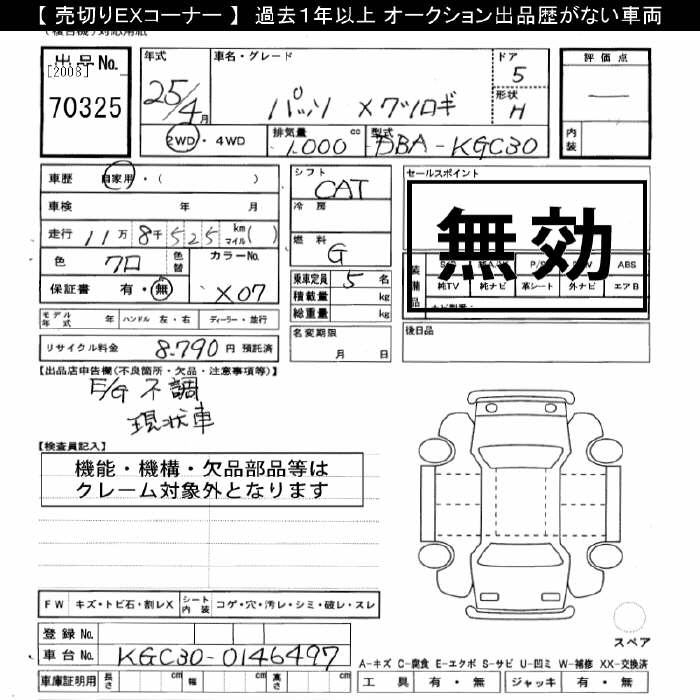 【 売切りEXコーナー 】 過去1年以上 オークション出品歴がない車両
出品No.
[2008]
70325
年式
25/4月
車名・グレード
パッソ ×クツロギ
ドア
5
形状
H
2WD・4WD
排気量
1.000cc
型式
DBA-KGC30
評価点
内装
車歴 自家用・( )
車検 年 月
走行 11万8千525 km マイル ( )
色 クロ 色替
カラーNo.
X07
保証書 有・無
シフト
CAT
冷房
燃料
G
乗車定員 5 名
積載量 kg
総重量 kg
名変期限
月 日
セールスポイント
無効
ABS
純TV 純ナビ 革シート 外ナビ エアB
後日品
モデル年式 年 ハンドル 左・右 ディーラー・並行
リサイクル料金 8.790 円 預託済
【出品店申告欄(不良箇所・欠品・注意事項等)】
E/G 不調
現状車
【検査員記入】
機能・機構・欠品部品等は
クレーム対象外となります
FW キズ・トビ石・割レX シート内装 コゲ・穴・汚レ・シミ・破レ・スレ
登録No.
車台No. KGC30-0146497
車庫証明用 長さ cm 幅 cm 高さ cm
スペア
A-キズ C-腐食 E-エクボ S-サビ U-凹ミ W-補修 XX-交換済
工具 有・無 ジャッキ 有・無